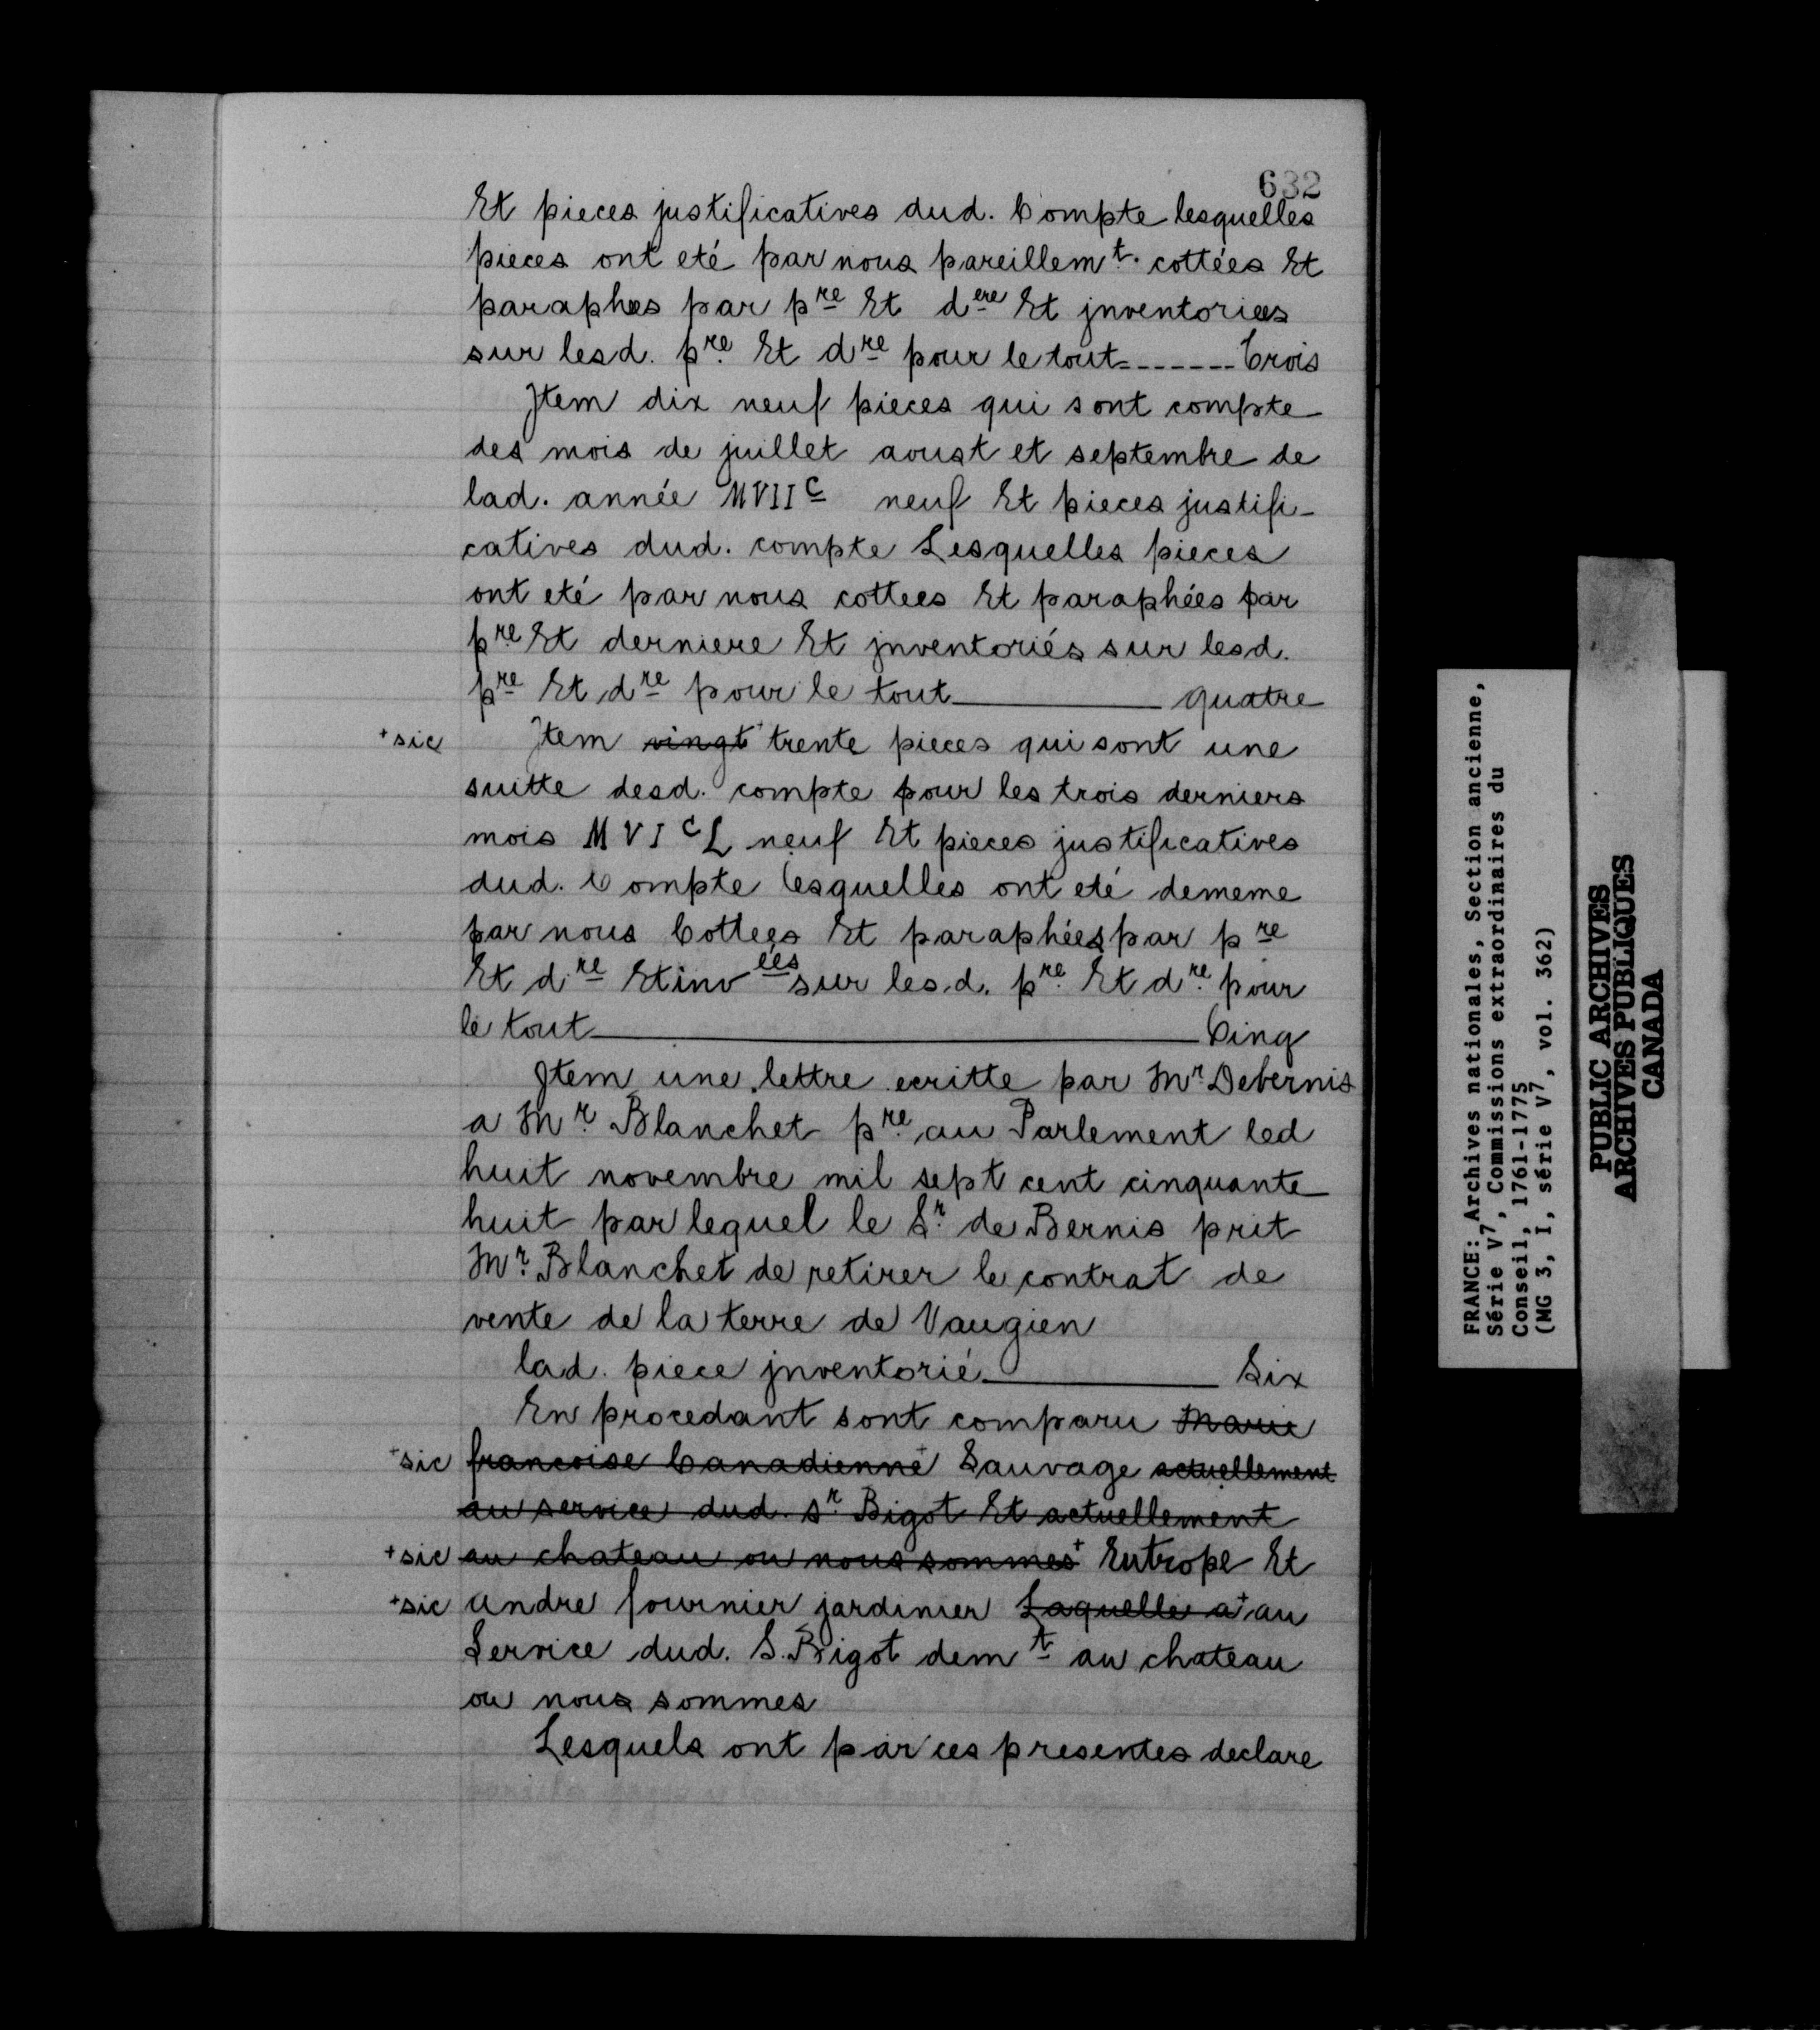 632
Et pieces justificatives dud. Compte lesquelles
pieces ont eté par nous pareillemt. cottées Et
paraphes par pre Et dere Et jnventoriees
sur lesd. pre Et dre pour le tout-------Trois
Jtem dix neuf pieces qui sont compte
des mois de juillet aoust et septembre de
lad. année MVIIc neuf Et pieces justifi-
catives dud. compte Lesquelles pieces
ont eté par nous cottees Et paraphées par
pre Et derniere Et jnventoriés sur lesd.
pre Et dre pour le tout quatre
+sic Jtem vingt+ trente pieces qui sont une
suitte desd. compte pour les trois derniers
mois MVIcL neuf Et pieces justificatives
dud. Compte lesquelles ont eté dememe
par nous Cottees Et paraphées par pre
Et dre Et inv iées sur les.d. pre Et dre pour
le tout Cinq
Jtem une lettre ecritte par Mr. Debernis
a Mr. Blanchet pre au Parlement led
huit novembre mil sept cent cinquante
huit par lequel le Sr. de Bernis prit
Mr. Blanchet de retirer le contrat de
vente de la terre de Vaugien
lad. piece jnventorié Six
En procedant sont comparu Marie
+sic francoise Canadienne+ Sauvage actuellement
au service dud. sr. Bigot Et actuellement
+sic au chateau ou nous sommes+ Eutrope Et
+sic andre fournier jardinier Laquelle a+ au
Service dud. S. Bigot demt au chateau
ou nous sommes
Lesquels ont par ces presentes declare
FRANCE: Archives nationales, Section ancienne,
Série V7, Commissions extraordinaires du
Conseil, 1761-1775
(MG 3, I, série V7, vol. 362)
PUBLIC ARCHIVES
ARCHIVES PUBLIQUES
CANADA